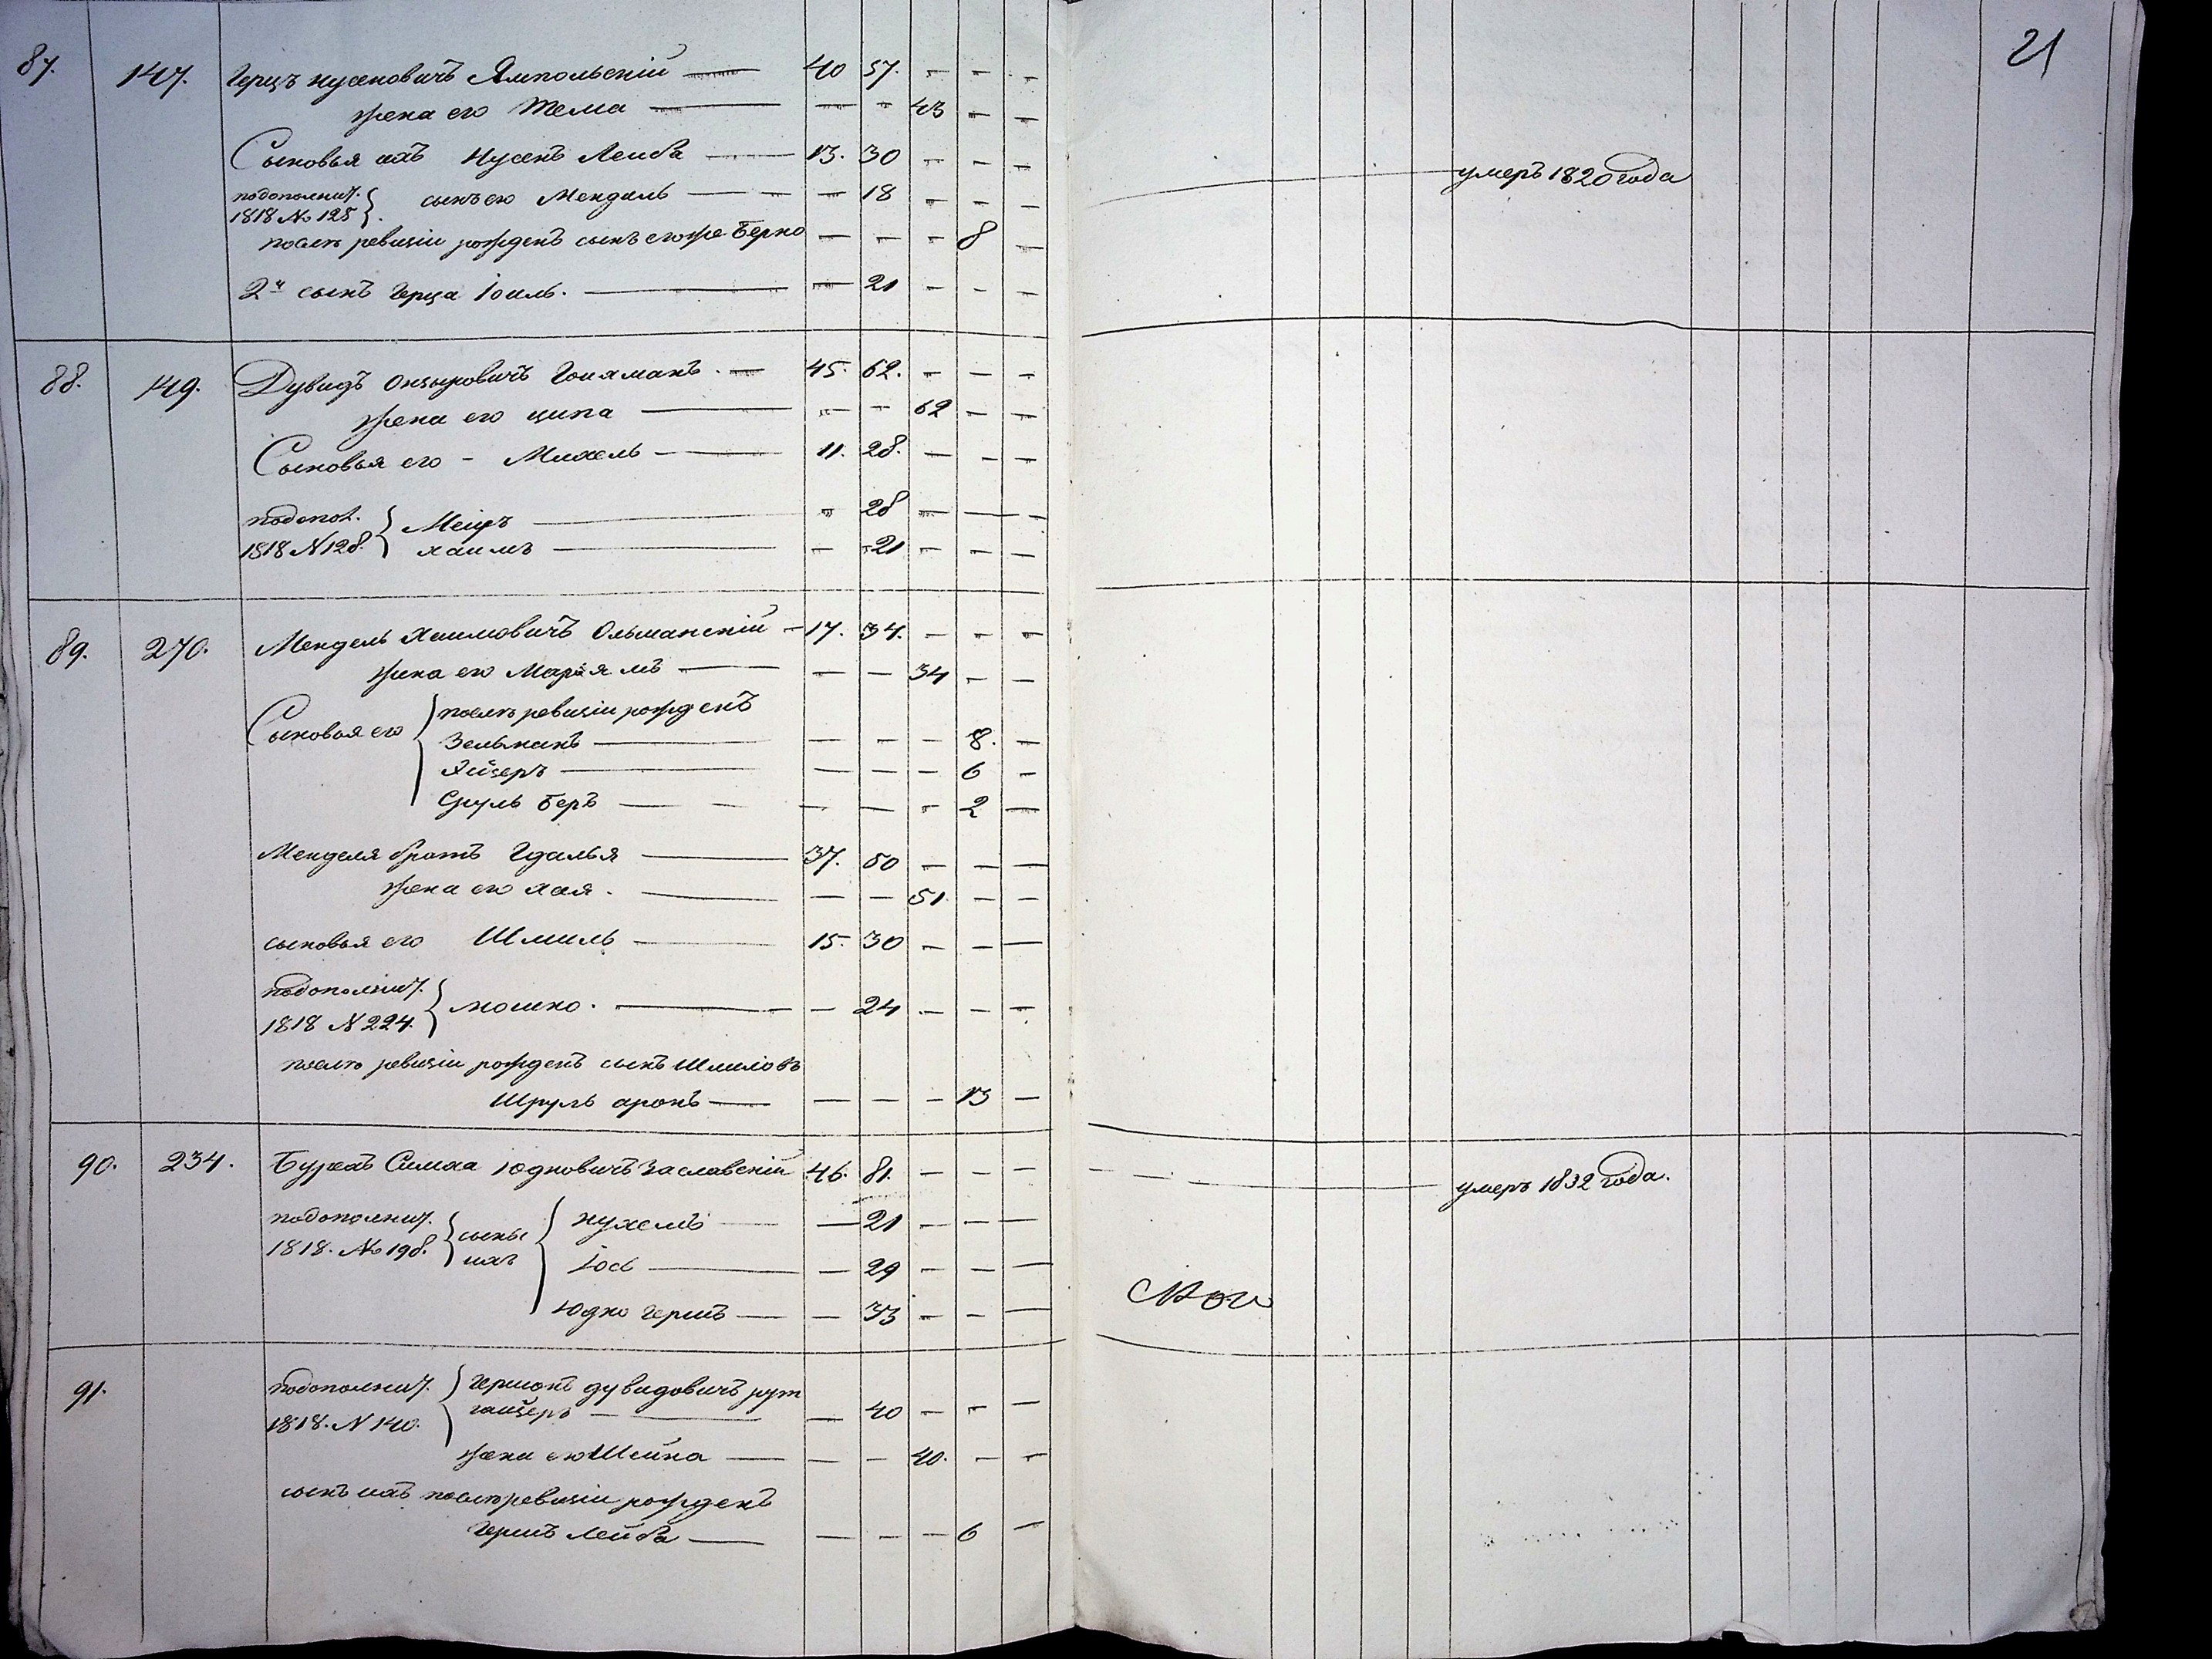 21
87. 147. Герцъ Нусеновичъ Ямпольскій — 40 57. — — —
жена его Тема — — — 43 — —
Сыновья ихъ Нусенъ Леиба — 13. 30 — — — умеръ 1820 года
подополнит.
1818 № 125 } сынъ его Мендиль — — 18 — — —
послѣ ревизіи рожденъ сынъ егоже Берко — — — 8 —
2й сынъ Герца Іоиль. — — 21 — — —
88. 149. Дувидъ Ошыровичъ — 45. 62. — — —
жена его ципа — — — 62 — —
Сыновья его - Михель — 11. 28. — — —
подопол.
1818 N 128. { Меиръ — — 28 — — —
хаимъ — — 21 — — —
89. 270. Мендель Хаимовичъ Ольманскій — 17. 34. — — —
жена его Маріямъ — — — 34 — —
Сыновья его { послѣ ревизіи рожденъ
Зельманъ — — — — 8. —
Лейзеръ — — — — 6 —
Сруль Беръ — — — — 2 —
Менделя братъ Гдалья — 37. 50 — — —
жена его хая. — — — 51 — —
сыновья его Шмиль — 15. 30 — — —
подополнит.
1818 N 224. { мошко. — — 24 — — —
послѣ ревизіи рожденъ сынъ Шмиловъ
Шруль аронъ — — — — 13 —
90. 234. Симха Юдковичъ Заславскій 46. 81. — — — умеръ 1832 года.
подополнит.
1818. № 198. { сыны ихъ { нухемъ — — 21 — — —
Іось — — 29 — — —
Юдко Гершъ — — 33 — — —
91. подополнит.
1818. N 140. { Гершонъ дувидовичъ рут
гаизеръ — — 40 — — —
жена его Шейна — — — 40. — —
сынъ ихъ послѣ ревизіи рожденъ
Гершъ Лейба — — — — 6 —